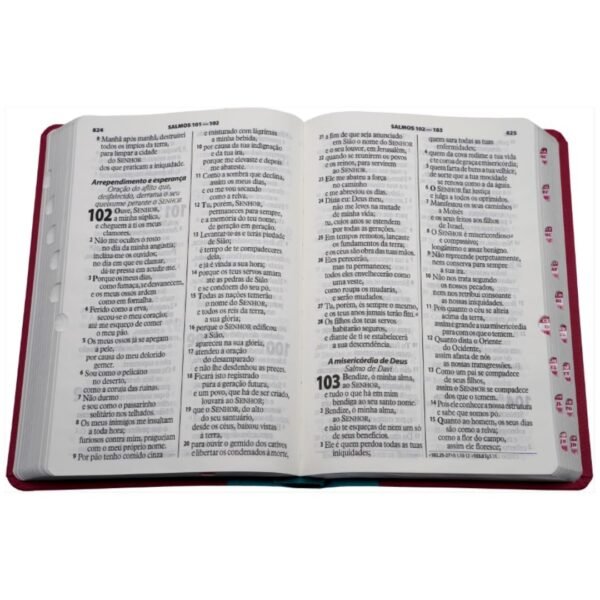 824
SALMOS 101 — 102
8 Manhã após manhã, destruirei
todos os ímpios da terra,
para limpar a cidade
do SENHOR
dos que praticam a iniquidade.
Arrependimento e esperança
Oração do aflito que,
desfalecido, derrama o seu
queixume perante o SENHOR
102 Ouve, SENHOR,
a minha súplica,
e cheguem a ti os meus
clamores.
2 Não me ocultes o rosto
no dia da minha angústia;
inclina-me os ouvidos;
no dia em que eu clamar,
dá-te pressa em acudir-me.
3 Porque os meus dias,
como fumaça, se desvanecem,
e os meus ossos ardem
como em fornalha.
4 Ferido como a erva,
secou-se o meu coração;
até me esqueço de comer
o meu pão.
5 Os meus ossos já se apegam
à pele,
por causa do meu dolorido
gemer.
6 Sou como o pelicano
no deserto,
como a coruja das ruínas.
7 Não durmo
e sou como o passarinho
solitário nos telhados.
8 Os meus inimigos me insultam
a toda hora;
furiosos contra mim, praguejam
com o meu próprio nome.
9 Por pão tenho comido cinza
e misturado com lágrimas
a minha bebida,
10 por causa da tua indignação
e da tua ira,
porque me elevaste e depois
me abateste.
11 Como a sombra que declina,
assim os meus dias,
e eu me vou secando
como a relva.
12 Tu, porém, SENHOR,
permaneces para sempre,
e a memória do teu nome,
de geração em geração.
13 Levantar-te-ás e terás piedade
de Sião;
é tempo de te compadeceres
dela,
e já é vinda a sua hora;
14 porque os teus servos amam
até as pedras de Sião
e se condoem do seu pó.
15 Todas as nações temerão
o nome do SENHOR,
e todos os reis da terra,
a sua glória;
16 porque o SENHOR edificou
a Sião,
apareceu na sua glória,
17 atendeu à oração
do desamparado
e não lhe desdenhou as preces.
18 Ficará isto registrado
para a geração futura,
e um povo, que há de ser criado,
louvará ao SENHOR;
19 que o SENHOR, do alto
do seu santuário,
desde os céus, baixou vistas
à terra,
20 para ouvir o gemido dos cativos
e libertar os condenados à morte,
SALMOS 102 — 103
825
21 a fim de que seja anunciado
em Sião o nome do SENHOR
e o seu louvor, em Jerusalém,
22 quando se reunirem os povos
e os reinos, para servirem
ao SENHOR.
23 Ele me abateu a força
no caminho
e me abreviou os dias.
24 Dizia eu: Deus meu,
não me leves na metade
de minha vida;
tu, cujos anos se estendem
por todas as gerações.
25 Em tempos remotos, lançaste
os fundamentos da terra;
e os céus são obra das tuas mãos.
26 Eles perecerão,
mas tu permaneces;
todos eles envelhecerão como
uma veste,
como roupa os mudarás,
e serão mudados.
27 Tu, porém, és sempre o mesmo,
e os teus anos jamais terão fim.
28 Os filhos dos teus servos
habitarão seguros,
e diante de ti se estabelecerá
a sua descendência.
A misericórdia de Deus
Salmo de Davi
103 Bendize, ó minha alma,
ao SENHOR,
e tudo o que há em mim
bendiga ao seu santo nome.
2 Bendize, ó minha alma,
ao SENHOR,
e não te esqueças de nem um só
de seus benefícios.
3 Ele é quem perdoa todas as tuas
iniquidades;
quem sara todas as tuas
enfermidades;
4 quem da cova redime a tua vida
e te coroa de graça e misericórdia;
5 quem farta de bens a tua velhice,
de sorte que a tua mocidade
se renova como a da águia.
6 O SENHOR faz justiça
e julga a todos os oprimidos.
7 Manifestou os seus caminhos
a Moisés
e os seus feitos aos filhos
de Israel.
8 O SENHOR é misericordioso
e compassivo;
longânimo e assaz benigno.
9 Não repreende perpetuamente,
nem conserva para sempre
a sua ira.
10 Não nos trata segundo
os nossos pecados,
nem nos retribui consoante
as nossas iniquidades.
11 Pois quanto o céu se alteia
acima da terra,
assim é grande a sua misericórdia
para com os que o temem.
12 Quanto dista o Oriente
do Ocidente,
assim afasta de nós
as nossas transgressões.
13 Como um pai se compadece
de seus filhos,
assim o SENHOR se compadece
dos que o temem.
14 Pois ele conhece a nossa estrutura
e sabe que somos pó.
15 Quanto ao homem, os seus dias
são como a relva;
como a flor do campo,
assim ele floresce;